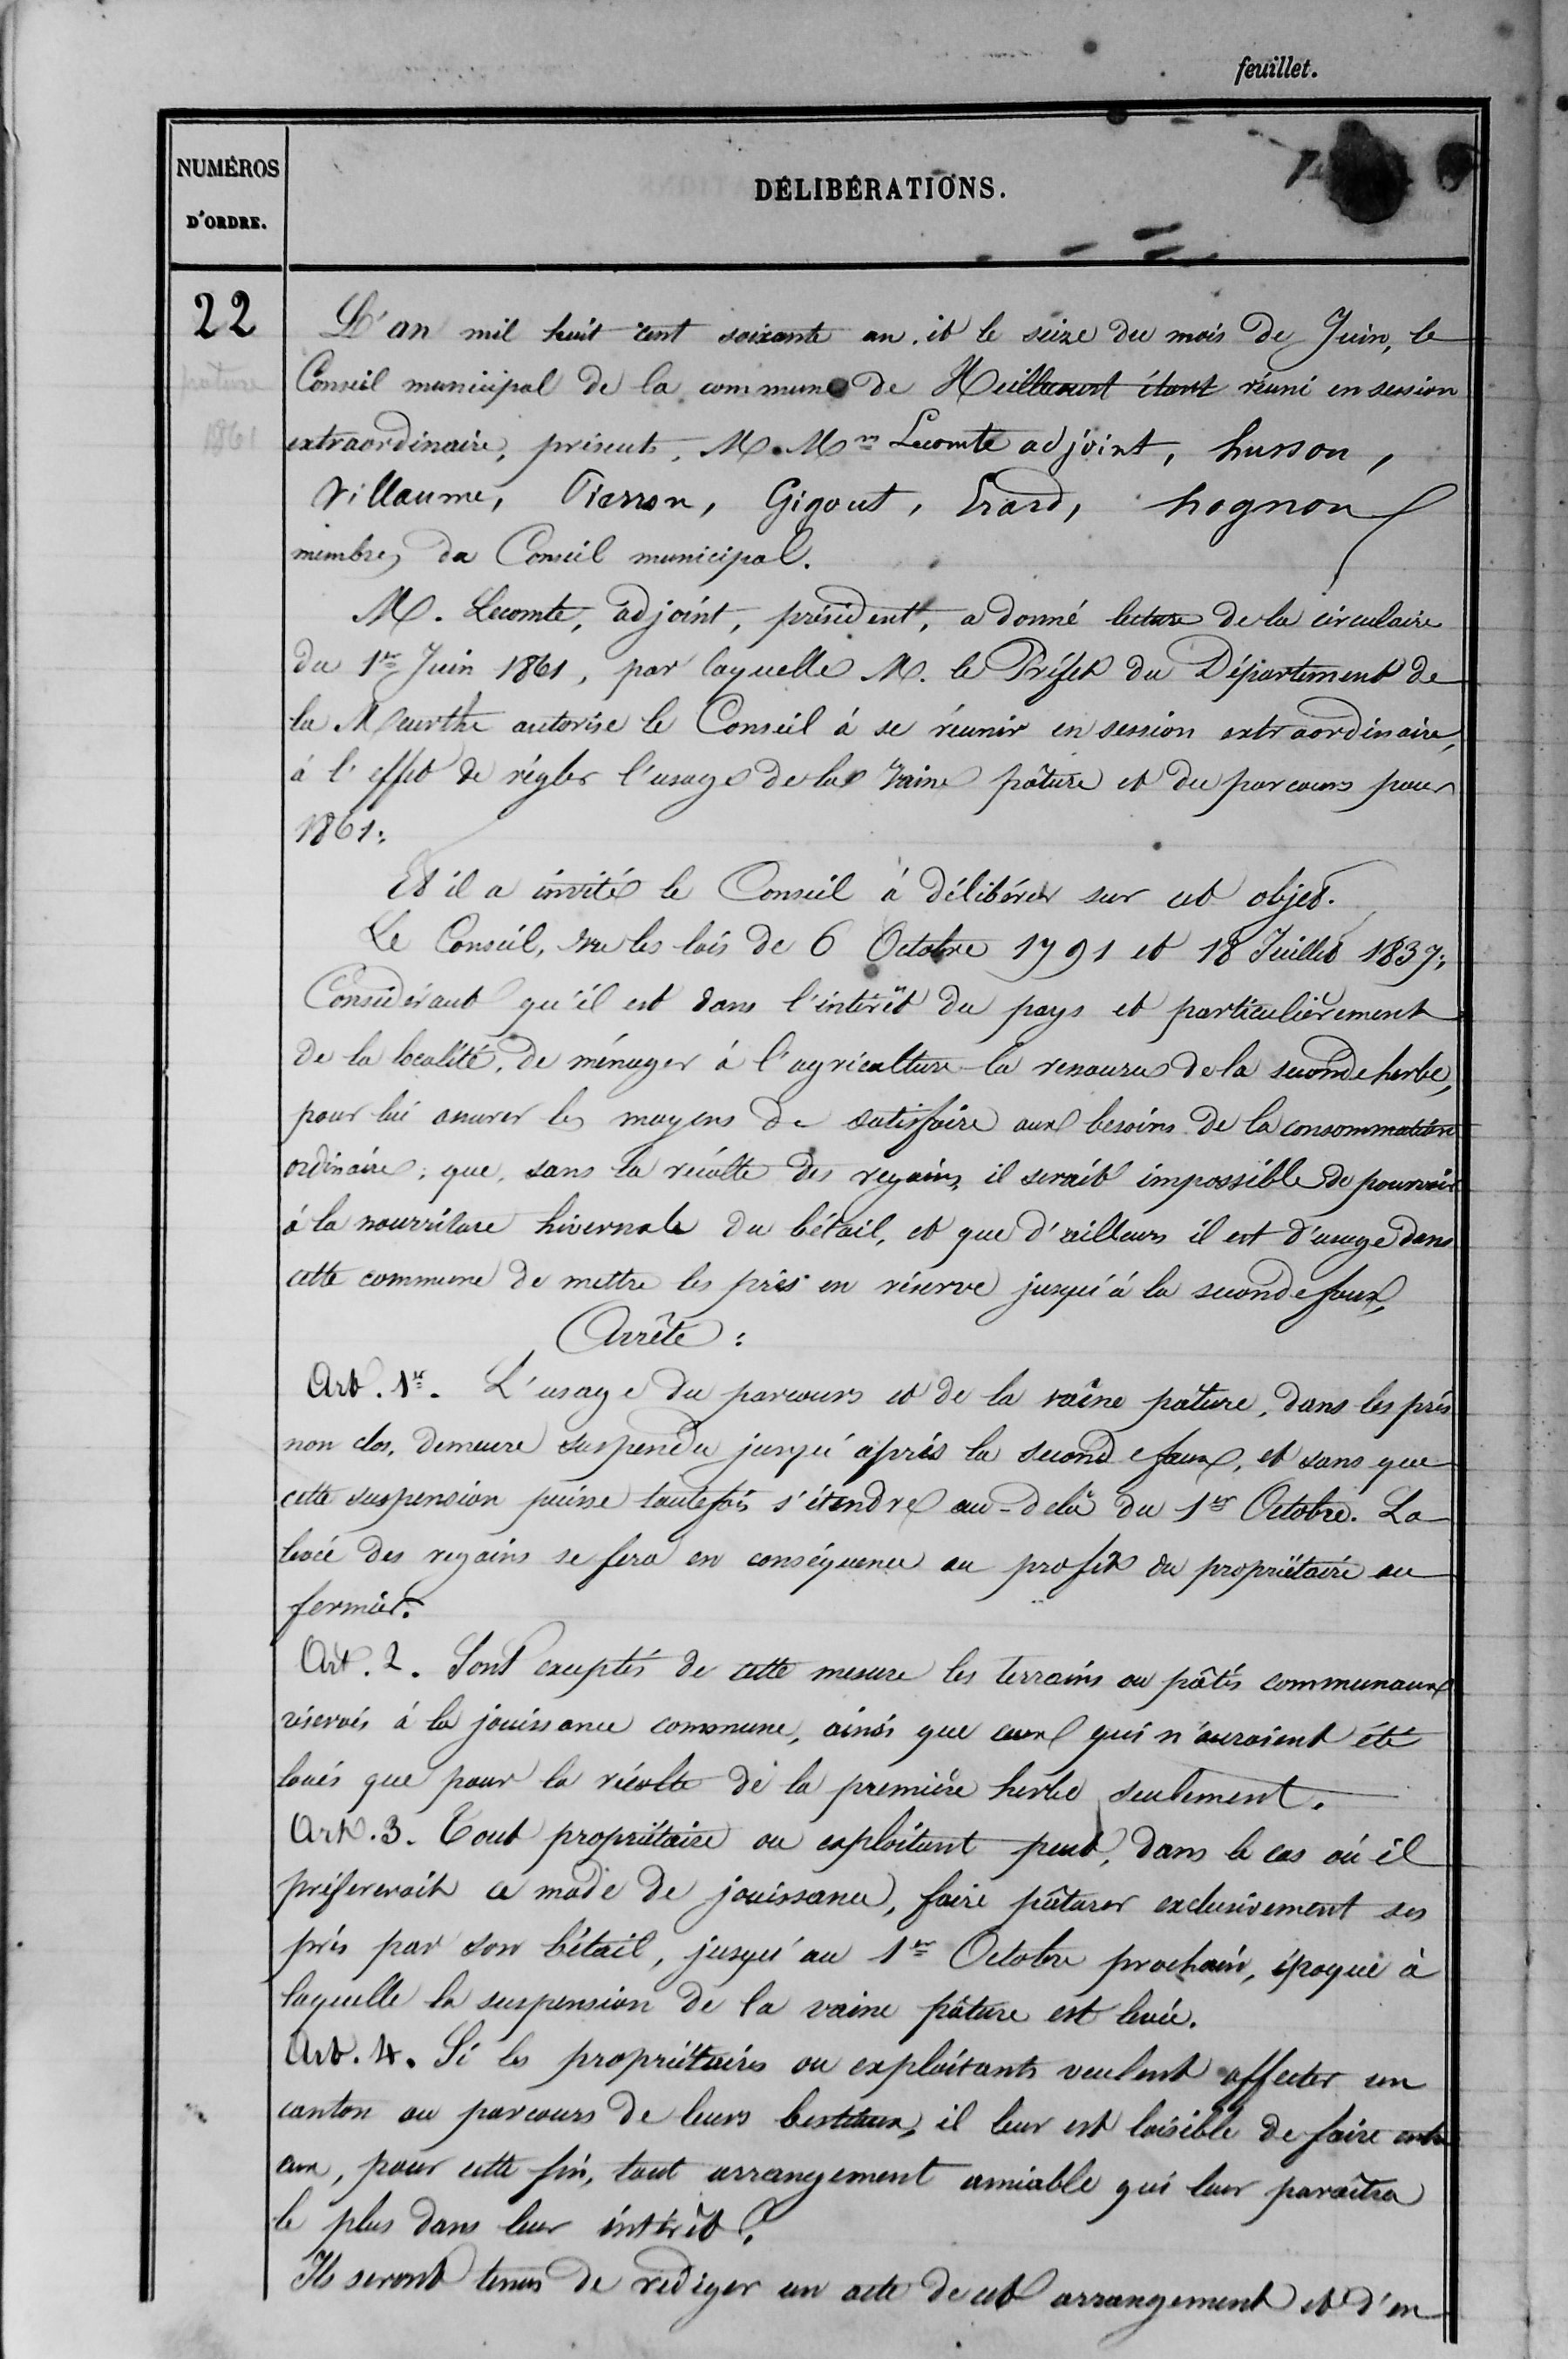 feuillet.
NUMÉROS
D'ORDRE.
DÉLIBÉRATIONS.
22
pature
1861
L'an mil huit cent soixante un et le seize du mois de Juin, le
Conseil municipal de la commune de Heillecourt étant réuni en session
extraordinaire, présents, M.Mrs Lecomte adjoint, husson,
Villaume, Pierson, Gigout, Erard, hognon
membres du Conseil municipal.
M. Lecomte, adjoint, président, a donné lecture de la circulaire
du 1er Juin 1861, par laquelle M. le Préfet du Département de
la Meurthe autorise le Conseil à se réunir en session extraordinaire,
à l'effet de régler l'usage de la Vaine pâture et du parcours pour
1861;
Et il a invité le Conseil à délibérer sur cet objet.
Le Conseil, vu les lois de 6 Octobre 1791 et 18 Juillet 1837;
Considérant qu'il est dans l'intérêt du pays et particulièrement
de la localité, de ménager à l'agriculture la ressource de la seconde herbe,
pour lui assurer les moyens de satisfaire aux besoins de la consommation
ordinaire; que, sans la récolte des regains, il serait impossible de pourvoir
à la nourriture hivernale du bétail, et que d'ailleurs il est d'usage dans
cette commune de mettre les prés en réserve jusqu'à la seconde faux,
Arrête :
Art. 1er. L'usage du parcours et de la vaine pâture, dans les prés
non clos, demeure suspendu jusqu'après la seconde faux, et sans que
cette suspension puisse toutefois s'étendre au-delà du 1er Octobre. La
levée des regains se fera en conséquence au profit du propriétaire ou
fermier.
Art. 2. Sont exceptés de cette mesure les terrains ou pâtis communaux
réservés à la jouissance commune, ainsi que ceux qui n'auraient été
loués que pour la récolte de la première herbe seulement.
Art. 3. Tout propriétaire ou exploitant peut, dans le cas où il
préfererait ce mode de jouissance, faire pâturer exclusivement ses
prés par son bétail, jusqu'au 1er Octobre prochain, époque à
laquelle la suspension de la vaine pâture est levée.
Art. 4. Si les propriétaires ou exploitants veulent affecter un
canton au parcours de leurs bestiaux, il leur est loisible de faire entre
eux, pour cette fin, tout arrangement amiable qui leur paraîtra
le plus dans leur intérêt.
Ils seront tenus de rediger un acte de cet arrangement et d'en